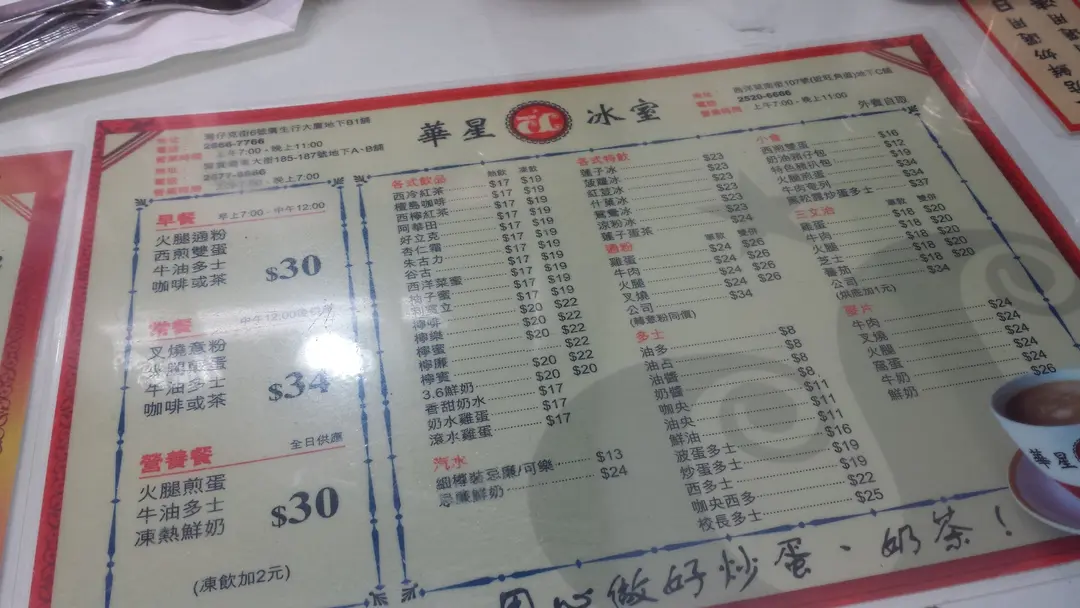 華星 冰室
灣仔克街6號廣生行大廈地下B1舖
2666-7766
上午7:00 - 晚上11:00
大街185-187號地下A、B舖
晚上7:00
西洋菜南街107號(近旺角道)地下C舖
2520-6666
上午7:00 - 晚上11:00
外賣自取
早餐 早上7:00 - 中午12:00
火腿通粉
西煎雙蛋
牛油多士
咖啡或茶
$30
常餐 中午12:00後
叉燒意粉
火腿煎蛋
牛油多士
咖啡或茶
$34
營養餐 全日供應
火腿煎蛋
牛油多士
凍熱鮮奶
$30
(凍飲加2元)
各式飲品 熱飲 凍飲
西冷紅茶 $17 $19
檀島咖啡 $17 $19
西檸紅茶 $17 $19
阿華田 $17 $19
好立克 $17 $19
杏仁霜 $17 $19
朱古力 $17 $19
谷古 $17 $19
西洋菜蜜 $17 $19
柚子蜜 $17 $19
利賓立 $17 $19
檸啡 $20 $22
檸樂 $20 $22
檸蜜 $22
檸廉 $22
檸賓 $20 $22
3.6鮮奶 $20 $20
香甜奶水 $17
奶水雞蛋 $17
滾水雞蛋 $17
汽水
細樽裝忌廉/可樂 $13
忌廉鮮奶 $24
各式特飲
蓮子冰 $23
菠蘿冰 $23
紅荳冰 $23
什菓冰 $23
鴛鴦冰 $23
涼粉冰 $23
蓮子蛋茶 $24
通粉 單款 雙併
雞蛋 $24 $26
牛肉 $24 $26
火腿 $24 $26
叉燒 $24 $26
公司 $34
(轉意粉同價)
多士
油多 $8
油占 $8
油醬 $8
奶醬 $8
咖央 $11
油央 $11
鮮油 $11
波蛋多士 $16
炒蛋多士 $19
西多士 $19
咖央西多 $22
校長多士 $25
小食
西煎雙蛋 $16
奶油豬仔包 $12
特色豬扒包 $19
火腿煎蛋 $34
牛肉奄列 $34
黑松露炒蛋多士 $37
三文治 單款 雙併
雞蛋 $18 $20
牛肉 $18 $20
火腿 $18 $20
芝士 $18 $20
蕃茄 $18 $20
公司 $34
(烘底加1元)
麥片
牛肉 $24
叉燒 $24
火腿 $24
窩蛋 $24
牛奶 $24
鮮奶 $26
華星
用心做好炒蛋、奶茶！